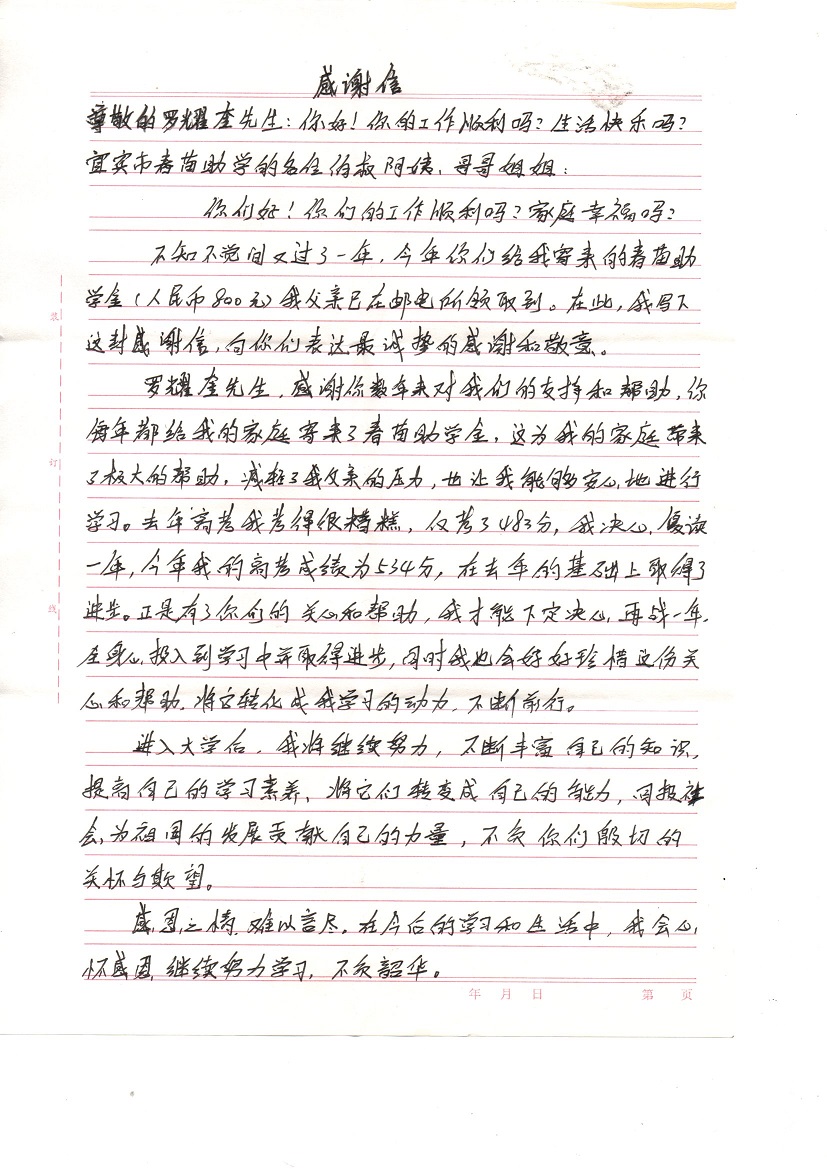 感谢信
尊敬的罗耀奎先生：你好！你的工作顺利吗？生活快乐吗？
宜宾市春苗助学的各位伯叔阿姨、哥哥姐姐：
你们好！你们的工作顺利吗？家庭幸福吗？
不知不觉间又过了一年，今年你们给我寄来的春苗助
学金（人民币800元）我父亲已在邮电所领取到。在此，我写下
这封感谢信，向你们表达最诚挚的感谢和敬意。
罗耀奎先生，感谢你数年来对我们的支持和帮助，你
每年都给我的家庭寄来了春苗助学金，这为我的家庭带来
了极大的帮助，减轻了我父亲的压力，也让我能够安心地进行
学习。去年高考我考得很糟糕，仅考了483分，我决心复读
一年，今年我的高考成绩为534分，在去年的基础上取得了
进步。正是有了你们的关心和帮助，我才能下定决心，再战一年，
全身心投入到学习中并取得进步，同时我也会好好珍惜这份关
心和帮助，将它转化成我学习的动力，不断前行。
进入大学后，我将继续努力，不断丰富自己的知识，
提高自己的学习素养，将它们转变成自己的能力，回报社
会，为祖国的发展贡献自己的力量，不负你们殷切的
关怀与欺望。
感恩之情，难以言尽。在今后的学习和生活中，我会心
怀感恩，继续努力学习，不负韶华。
年 月 日 第 页
装
订
线